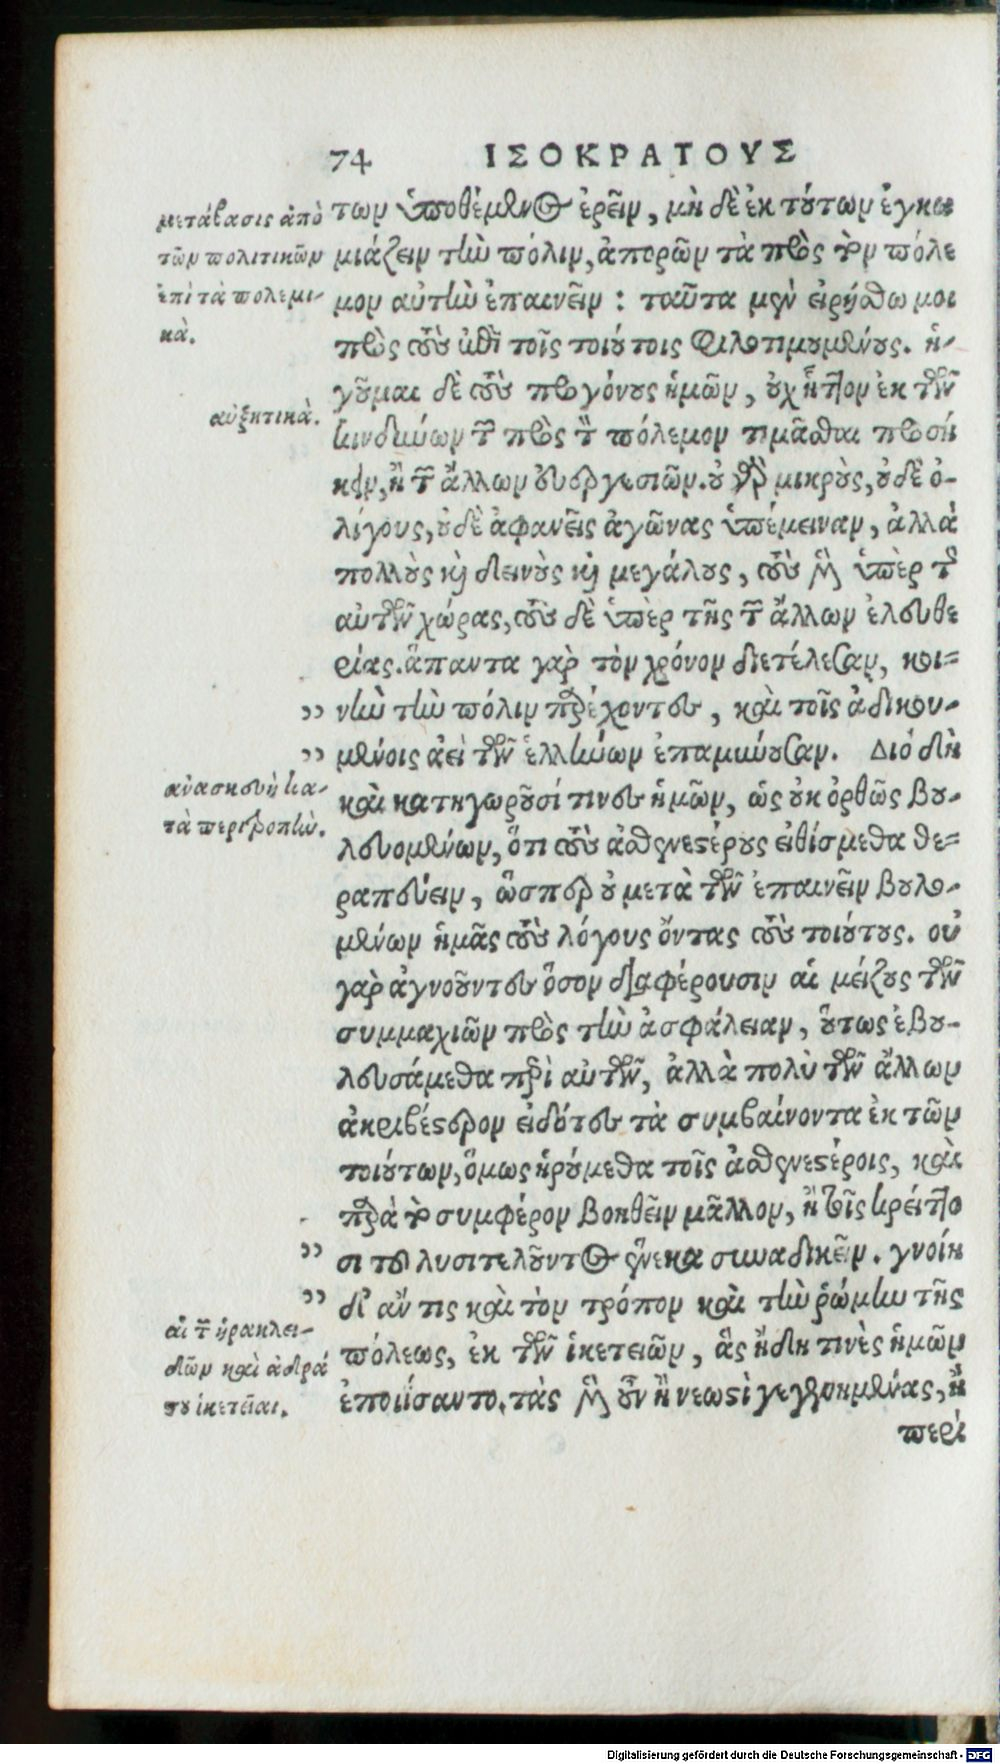 74 ΙΣΟΚΡΑΤΟΥΣ
μετάβασις ἀπὸ
τῶν πολιτικῶν
ἐπὶ τὰ πολεμι-
κὰ.
αὐξητικὰ.
ἀνασκευὴ κα-
τὰ περιτροπὴν.
αἱ τῶν ἡρακλει-
δῶν καὶ ἀδρά
στου ἱκετεῖαι.
των ὑποθέμενος ἐρεῖν, μὴ δὲ ἐκ τούτων ἐγκω
μιάζειν τὴν πόλιν, ἀπορῶν τὰ πρὸς τὸν πόλε
μον αὐτὴν ἐπαινεῖν : ταῦτα μὲν εἰρήσθω μοι
πρὸς τοὺς ἐπὶ τοῖς τοιούτοις φιλοτιμουμένους. ἡ-
γοῦμαι δὲ τοὺς προγόνους ἡμῶν, οὐχ ἧττον ἐκ τῶν
κινδύνων τῶν πρὸς τὸν πόλεμον τιμᾶσθαι προσή
κειν, ἢ τῶν ἄλλων εὐεργεσιῶν. οὐ γὰρ μικροὺς, οὐδὲ ὀ-
λίγους, οὐδὲ ἀφανεῖς ἀγῶνας ὑπέμειναν, ἀλλὰ
πολλοὺς καὶ δεινοὺς καὶ μεγάλους, τοὺς μὲν ὑπὲρ τῆς
αὐτῶν χώρας, τοὺς δὲ ὑπὲρ τῆς τῶν ἄλλων ἐλευθε
ρίας. ἅπαντα γὰρ τὸν χρόνον διετέλεσαν, κοι-
” νὴν τὴν πόλιν παρέχοντες, καὶ τοῖς ἀδικου-
” μένοις ἀεὶ τῶν ἑλλήνων ἐπαμύνουσαν. Διό δὴ
καὶ κατηγωροῦσί τινες ἡμῶν, ὡς οὐκ ὀρθῶς βου-
λευομένων, ὅτι τοὺς ἀσθενεστέρους εἰθίσμεθα θε-
ραπεύειν, ὥσπερ οὐ μετὰ τῶν ἐπαινεῖν βουλο-
μένων ἡμᾶς τοὺς λόγους ὄντας τοὺς τοιούτους. οὐ
γὰρ ἀγνοοῦντες ὅσον διαφέρουσιν αἱ μείζους τῶν
συμμαχιῶν πρὸς τὴν ἀσφάλειαν, οὕτως ἐβου-
λευσάμεθα περὶ αὐτῶν, ἀλλὰ πολὺ τῶν ἄλλων
ἀκριβέστερον εἰδότες τὰ συμβαίνοντα ἐκ τῶν
τοιούτων, ὅμως ἡρούμεθα τοῖς ἀσθενεστέροις, καὶ
παρὰ τὸ συμφέρον βοηθεῖν μᾶλλον, ἢ τοῖς κρείττο
” σι τοῦ λυσιτελοῦντος ἕνεκα συναδικεῖν. γνοίη
” δ' ἄν τις καὶ τὸν τρόπον καὶ τὴν ῥώμην τῆς
πόλεως, ἐκ τῶν ἱκετειῶν, ἃς ἤδη τινὲς ἡμῶν
ἐποιήσαντο. τὰς μὲν οὖν ἢ νεωστὶ γεγενημένας, ἢ
περὶ
Digitalisierung gefördert durch die Deutsche Forschungsgemeinschaft - DFG